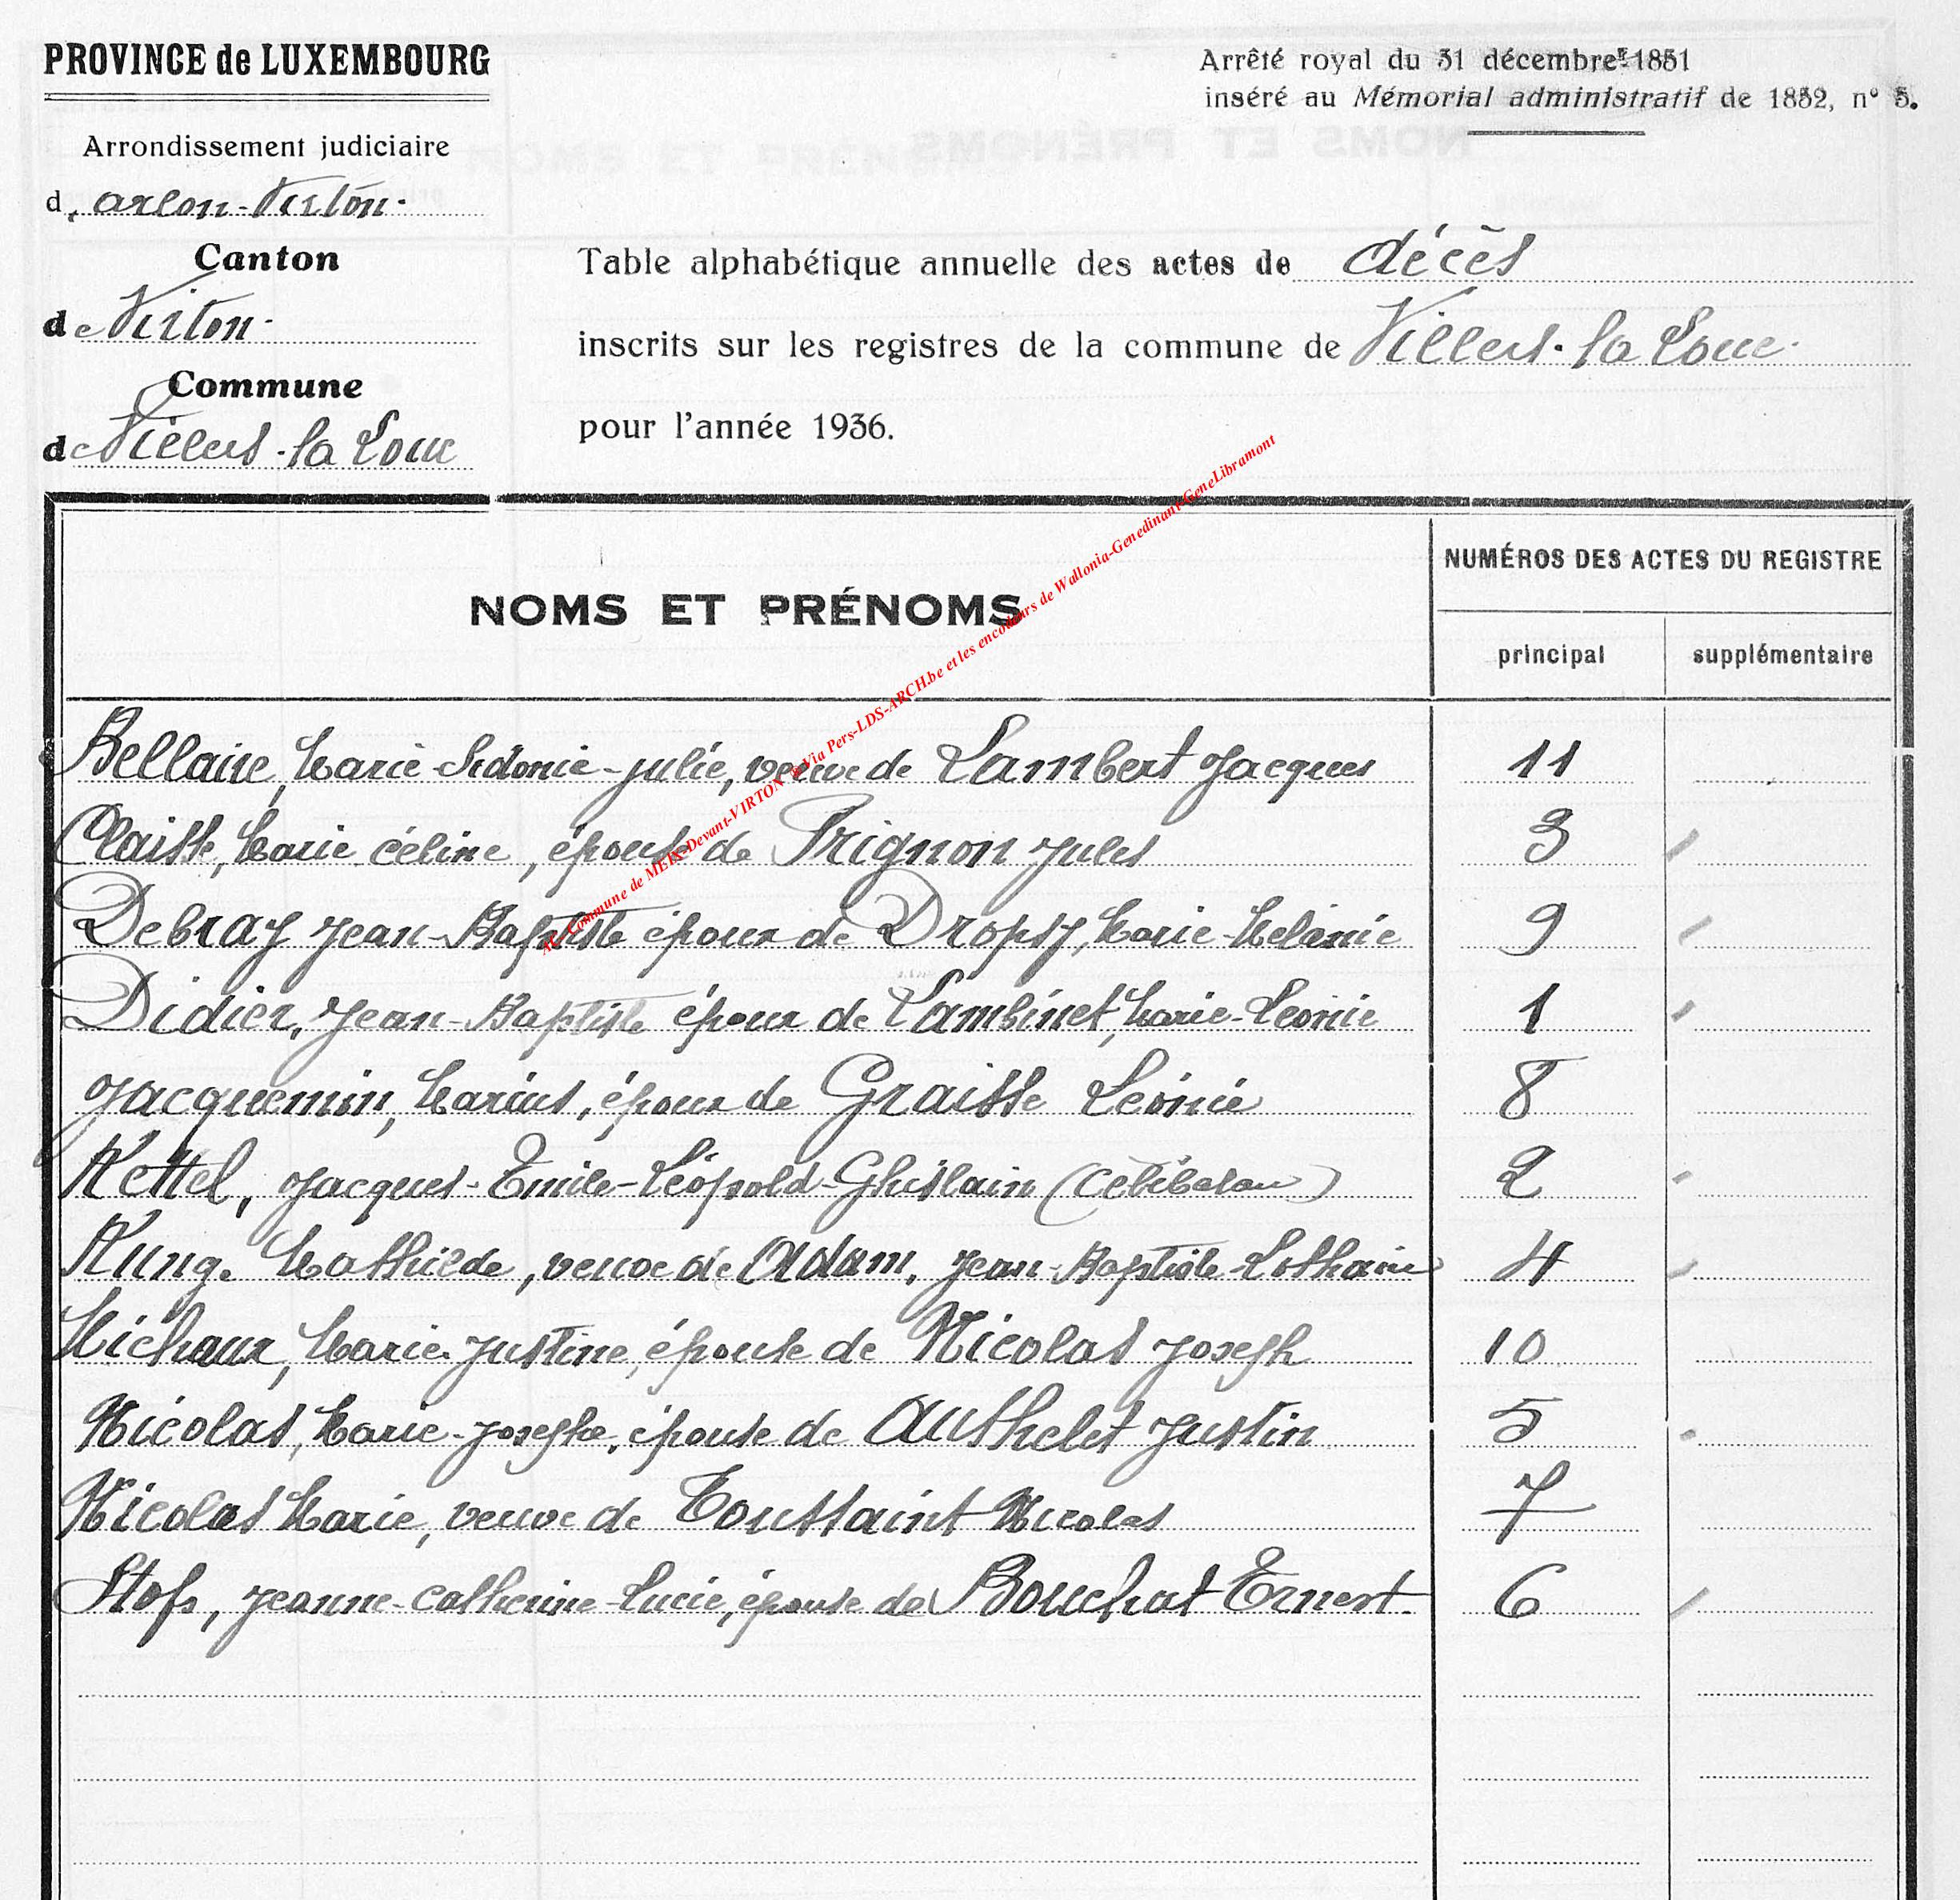 PROVINCE de LUXEMBOURG
Arrêté royal du 31 décembre 1851
inséré au Mémorial administratif de 1852, n° 5.
Arrondissement judiciaire
d, arlon-Virton.
Canton
de Virton.
Commune
de Villers-la Loue
Table alphabétique annuelle des actes de décès
inscrits sur les registres de la commune de Villers-la Loue.
pour l'année 1936.
NOMS ET PRÉNOMS
NUMÉROS DES ACTES DU REGISTRE
principal supplémentaire
Bellaire, Marie-Sidonie-Julie, veuve de Lambert Jacques 11
Claisse, Marie Céline, épouse de Prignon Jules 3
Debray Jean-Baptiste époux de Dropsy, Marie-Mélanie 9
Didier, Jean-Baptiste époux de Lambinet, Marie-Léonie 1
Jacquemin, Marius, époux de Graisse Léonie 8
Kettel, Jacques-Emile-Léopold-Ghislain (Célibataire) 2
Kung. Mathilde, veuve de Adam, Jean-Baptiste-Lothaire 4
Michaux, Marie-Justine, épouse de Nicolas Joseph 10
Nicolas, Marie-Josephe, épouse de Authelet Justin 5
Nicolas Marie, veuve de Toussaint Nicolas 7
Stofs, Jeanne-Catherine-Lucie, épouse de Bouchat Ernest. 6
Commune de MEIX-Devant-VIRTON Via Pers-LDS-ARCH.be et les encodeurs de Wallonia-Genedinant-GeneLibramont